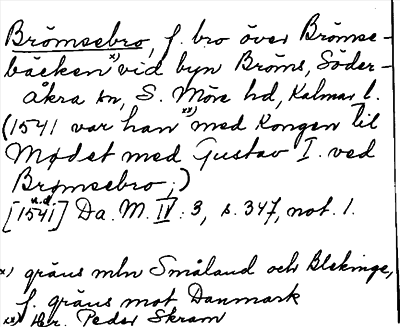 Brömsebro, f. bro över Brömse-
bäcken x) vid byn Bröms, Söder-
åkra sn, S. Möre hd, Kalmar l.
(1541 var han xx) med Kongen til
Mødet med Gustav I. ved
Brømsebro;)
[1541] u.d. Da. M. IV: 3, s. 347, not. 1.
x) gräns mln Småland och Blekinge,
f. gräns mot Danmark
xx) Hr. Peder Skram